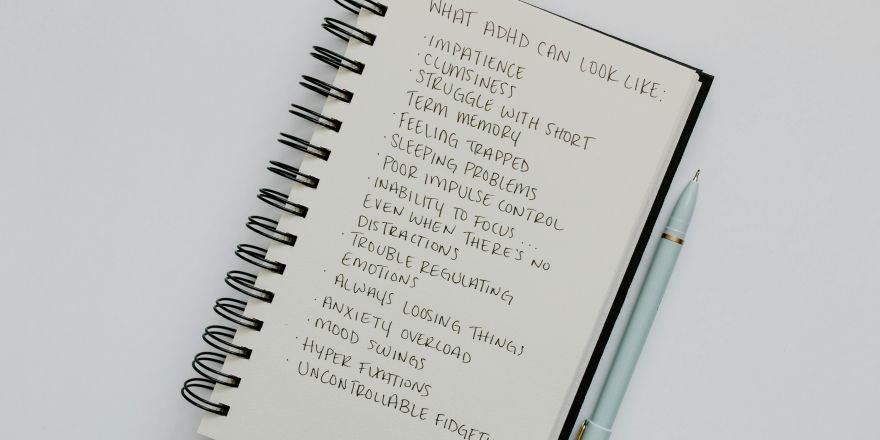 WHAT ADHD CAN LOOK LIKE:
· IMPATIENCE
· CLUMSINESS
· STRUGGLE WITH SHORT
TERM MEMORY
· FEELING TRAPPED
· SLEEPING PROBLEMS
· POOR IMPULSE CONTROL
· INABILITY TO FOCUS ...
EVEN WHEN THERE'S NO
DISTRACTIONS
· TROUBLE REGULATING
EMOTIONS
· ALWAYS LOOSING THINGS
· ANXIETY OVERLOAD
· MOOD SWINGS
· HYPER FIXATIONS
· UNCONTROLLABLE